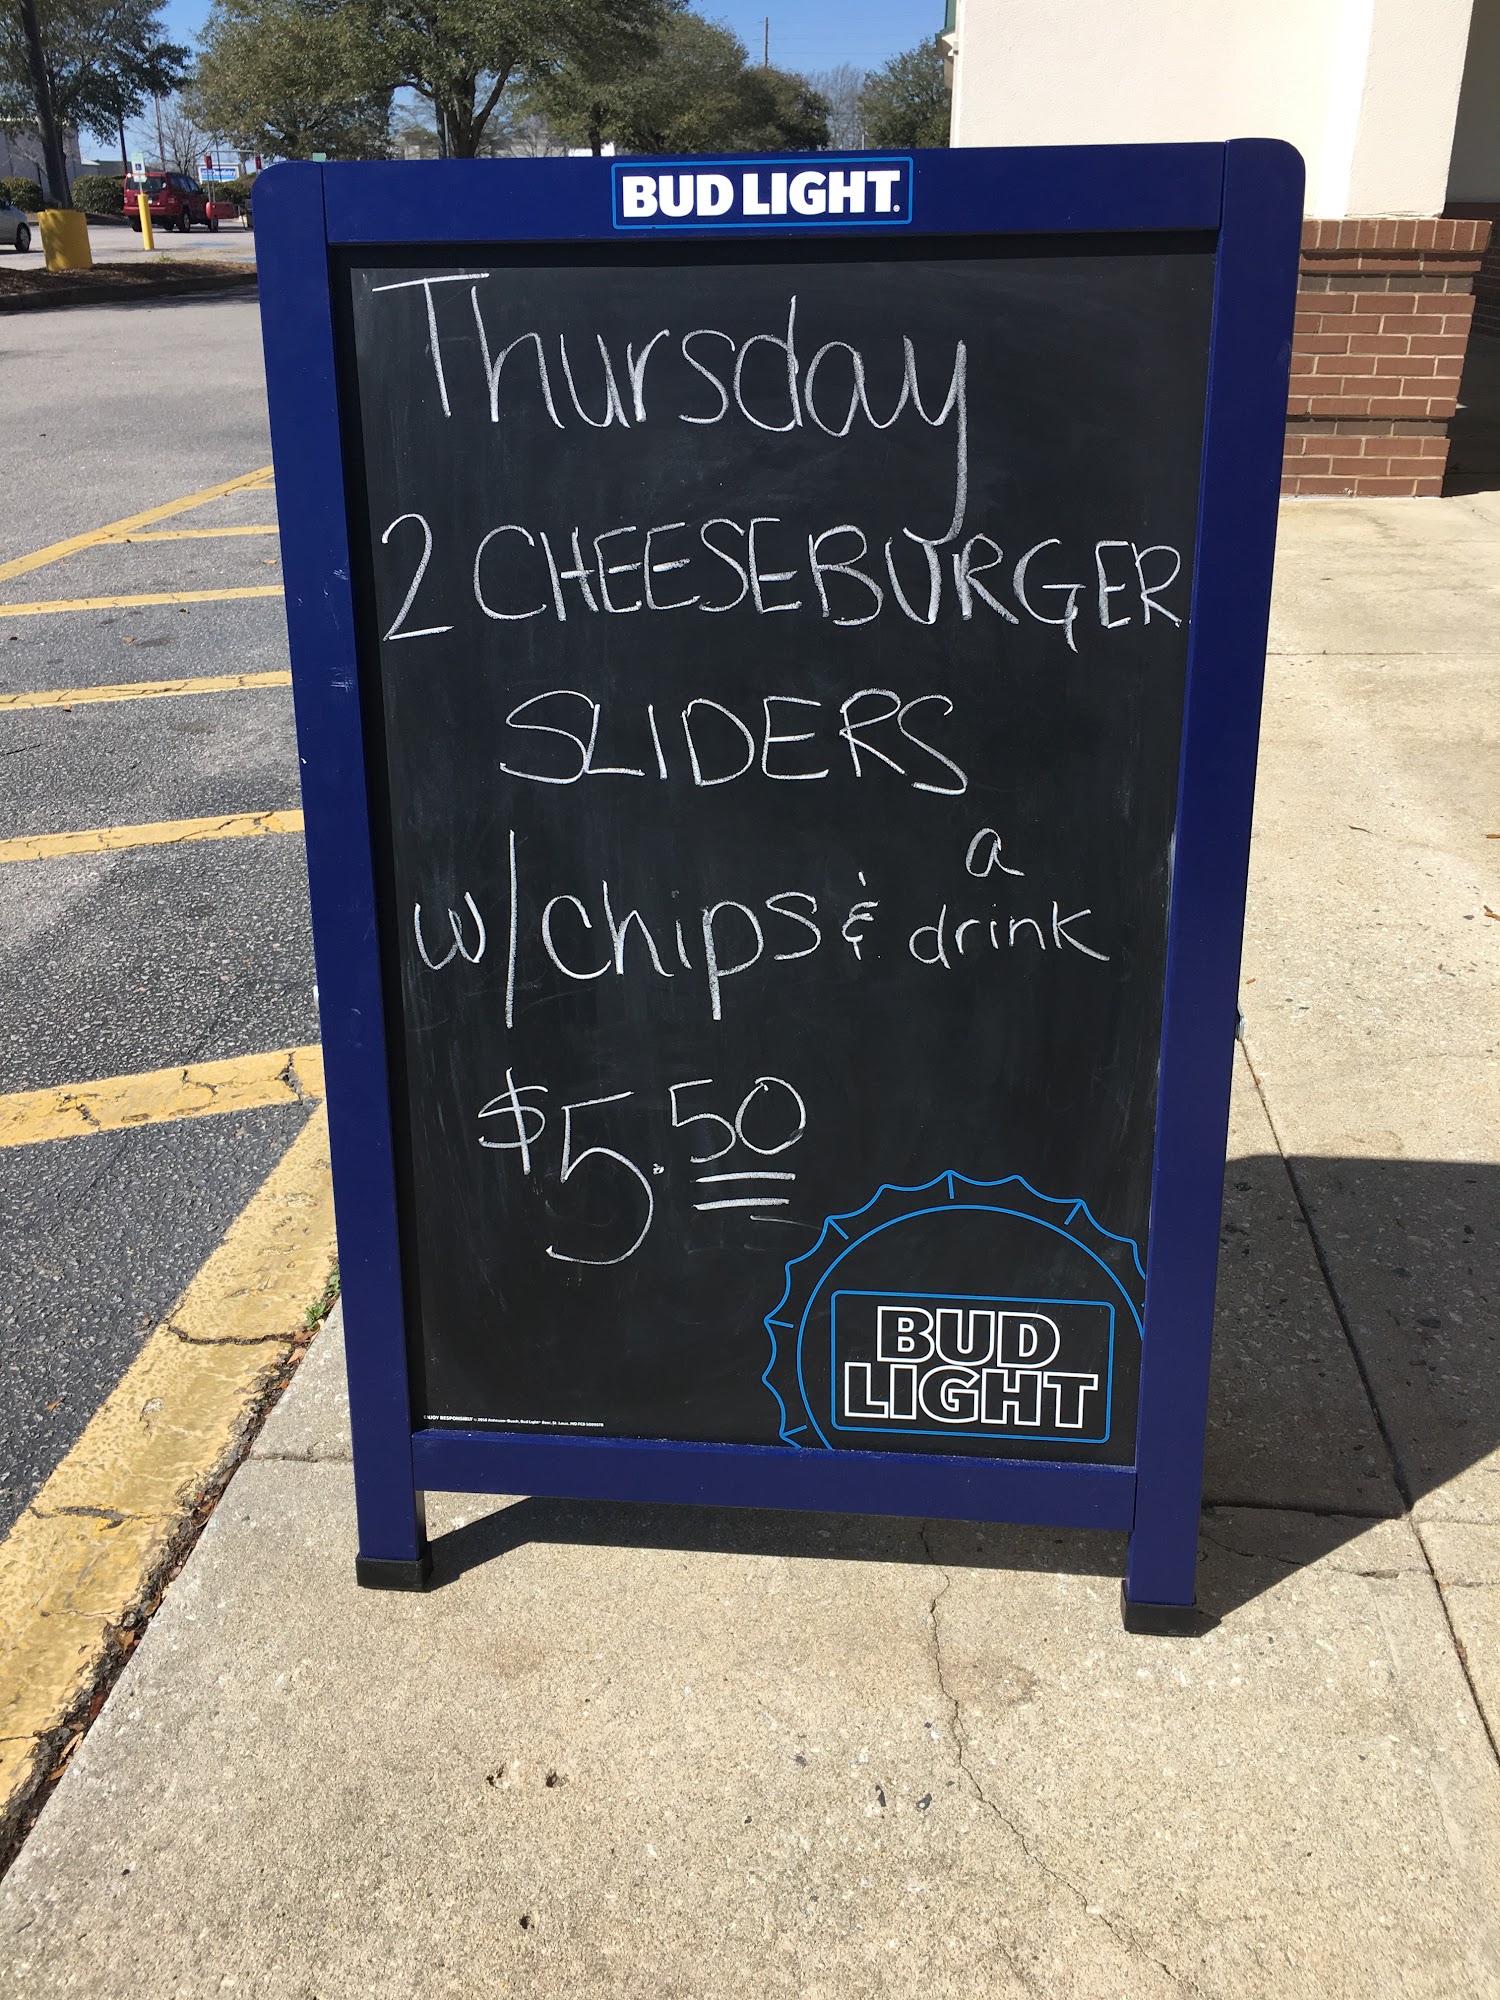 BUD LIGHT.
Thursday
2 CHEESEBURGER
SLIDERS
w/chips & a drink
$5.50
BUD
LIGHT